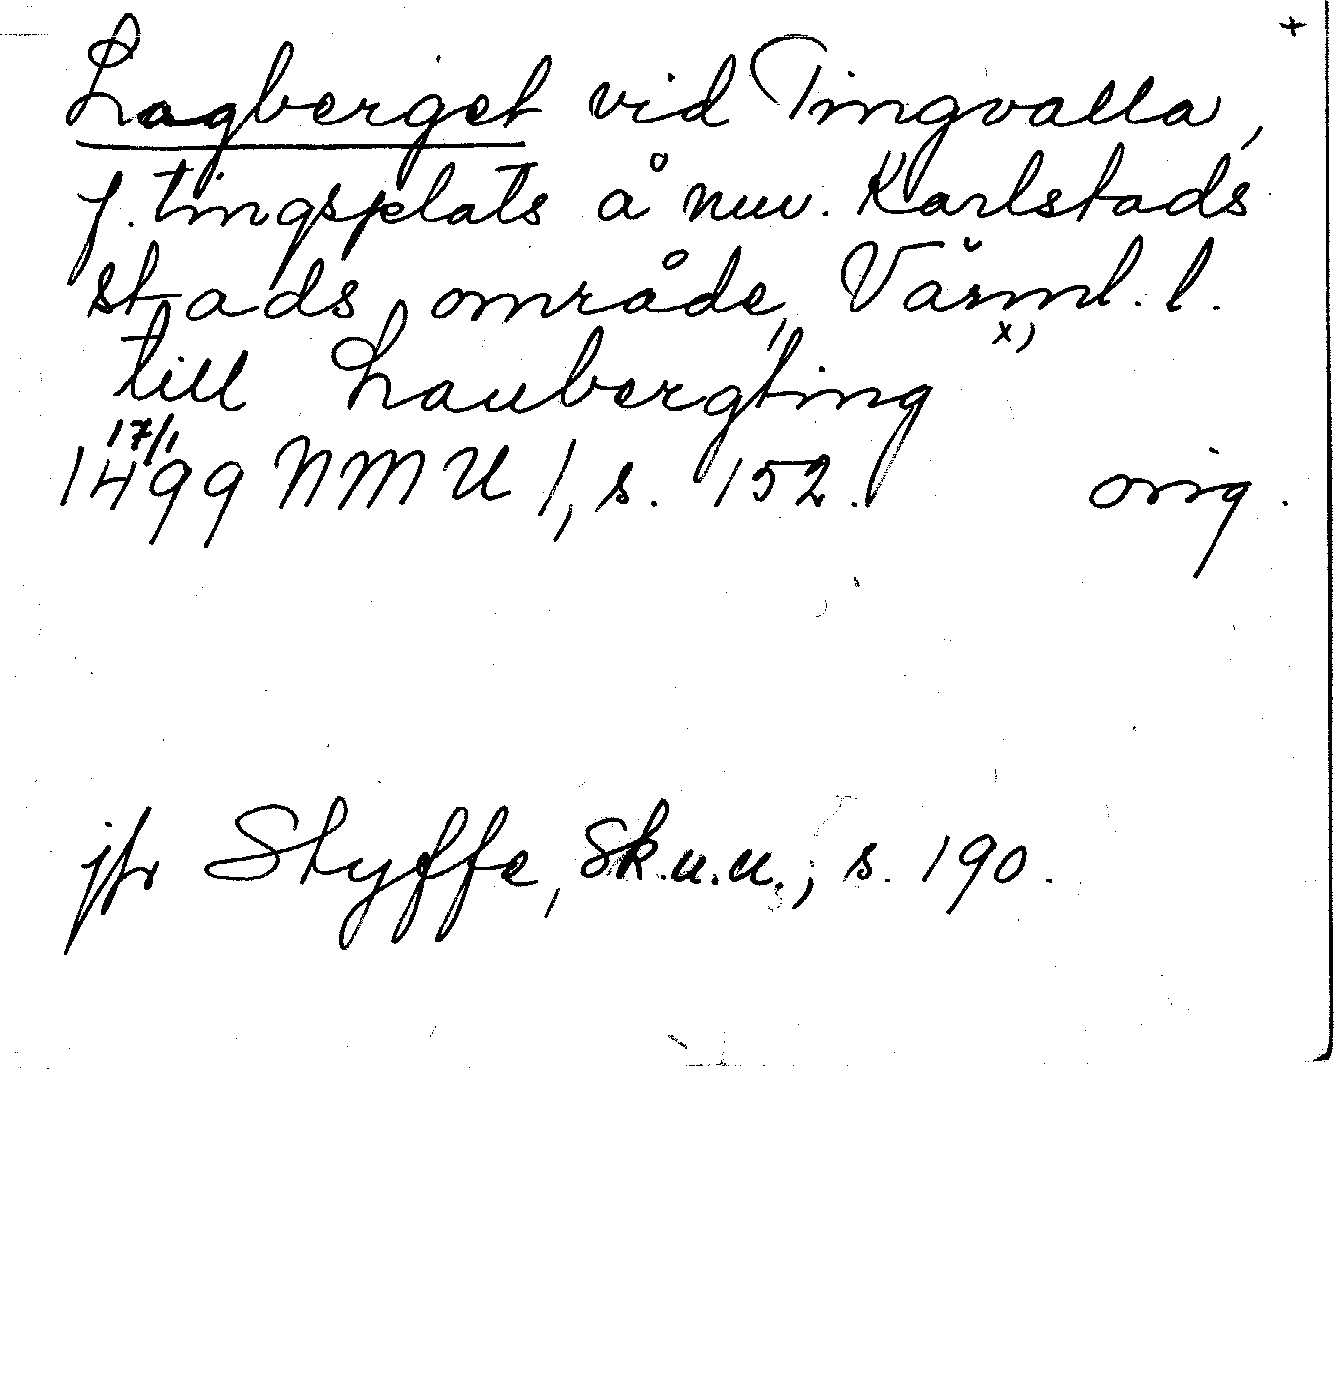 +
Lagberget vid Tingvalla,
f. tingsplats å nuv. Karlstads
stads område, Värml. l.
x)
till Laubergting
17/1
1499 NMU 1, s. 152. orig.
jfr Styffe, Sk.u.u., s. 190.